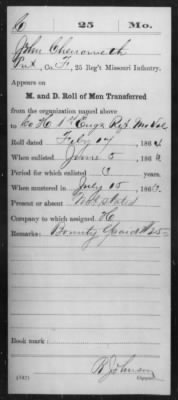 C 25 Mo.
John Chenoweth
Pvt, Co. F, 25 Reg't Missouri Infantry.
Appears on
M. and D. Roll of Men Transferred
from the organization named above
to Co H 1st Engr Reg Mo Vol
Roll dated Feby 17, 1864
When enlisted June 5, 186
Period for which enlisted 3 years.
When mustered in July 10, 186
Present or absent Not stated
Company to which assigned H
Remarks: Bounty paid $25
Book mark:
B Johnson
Copyist.